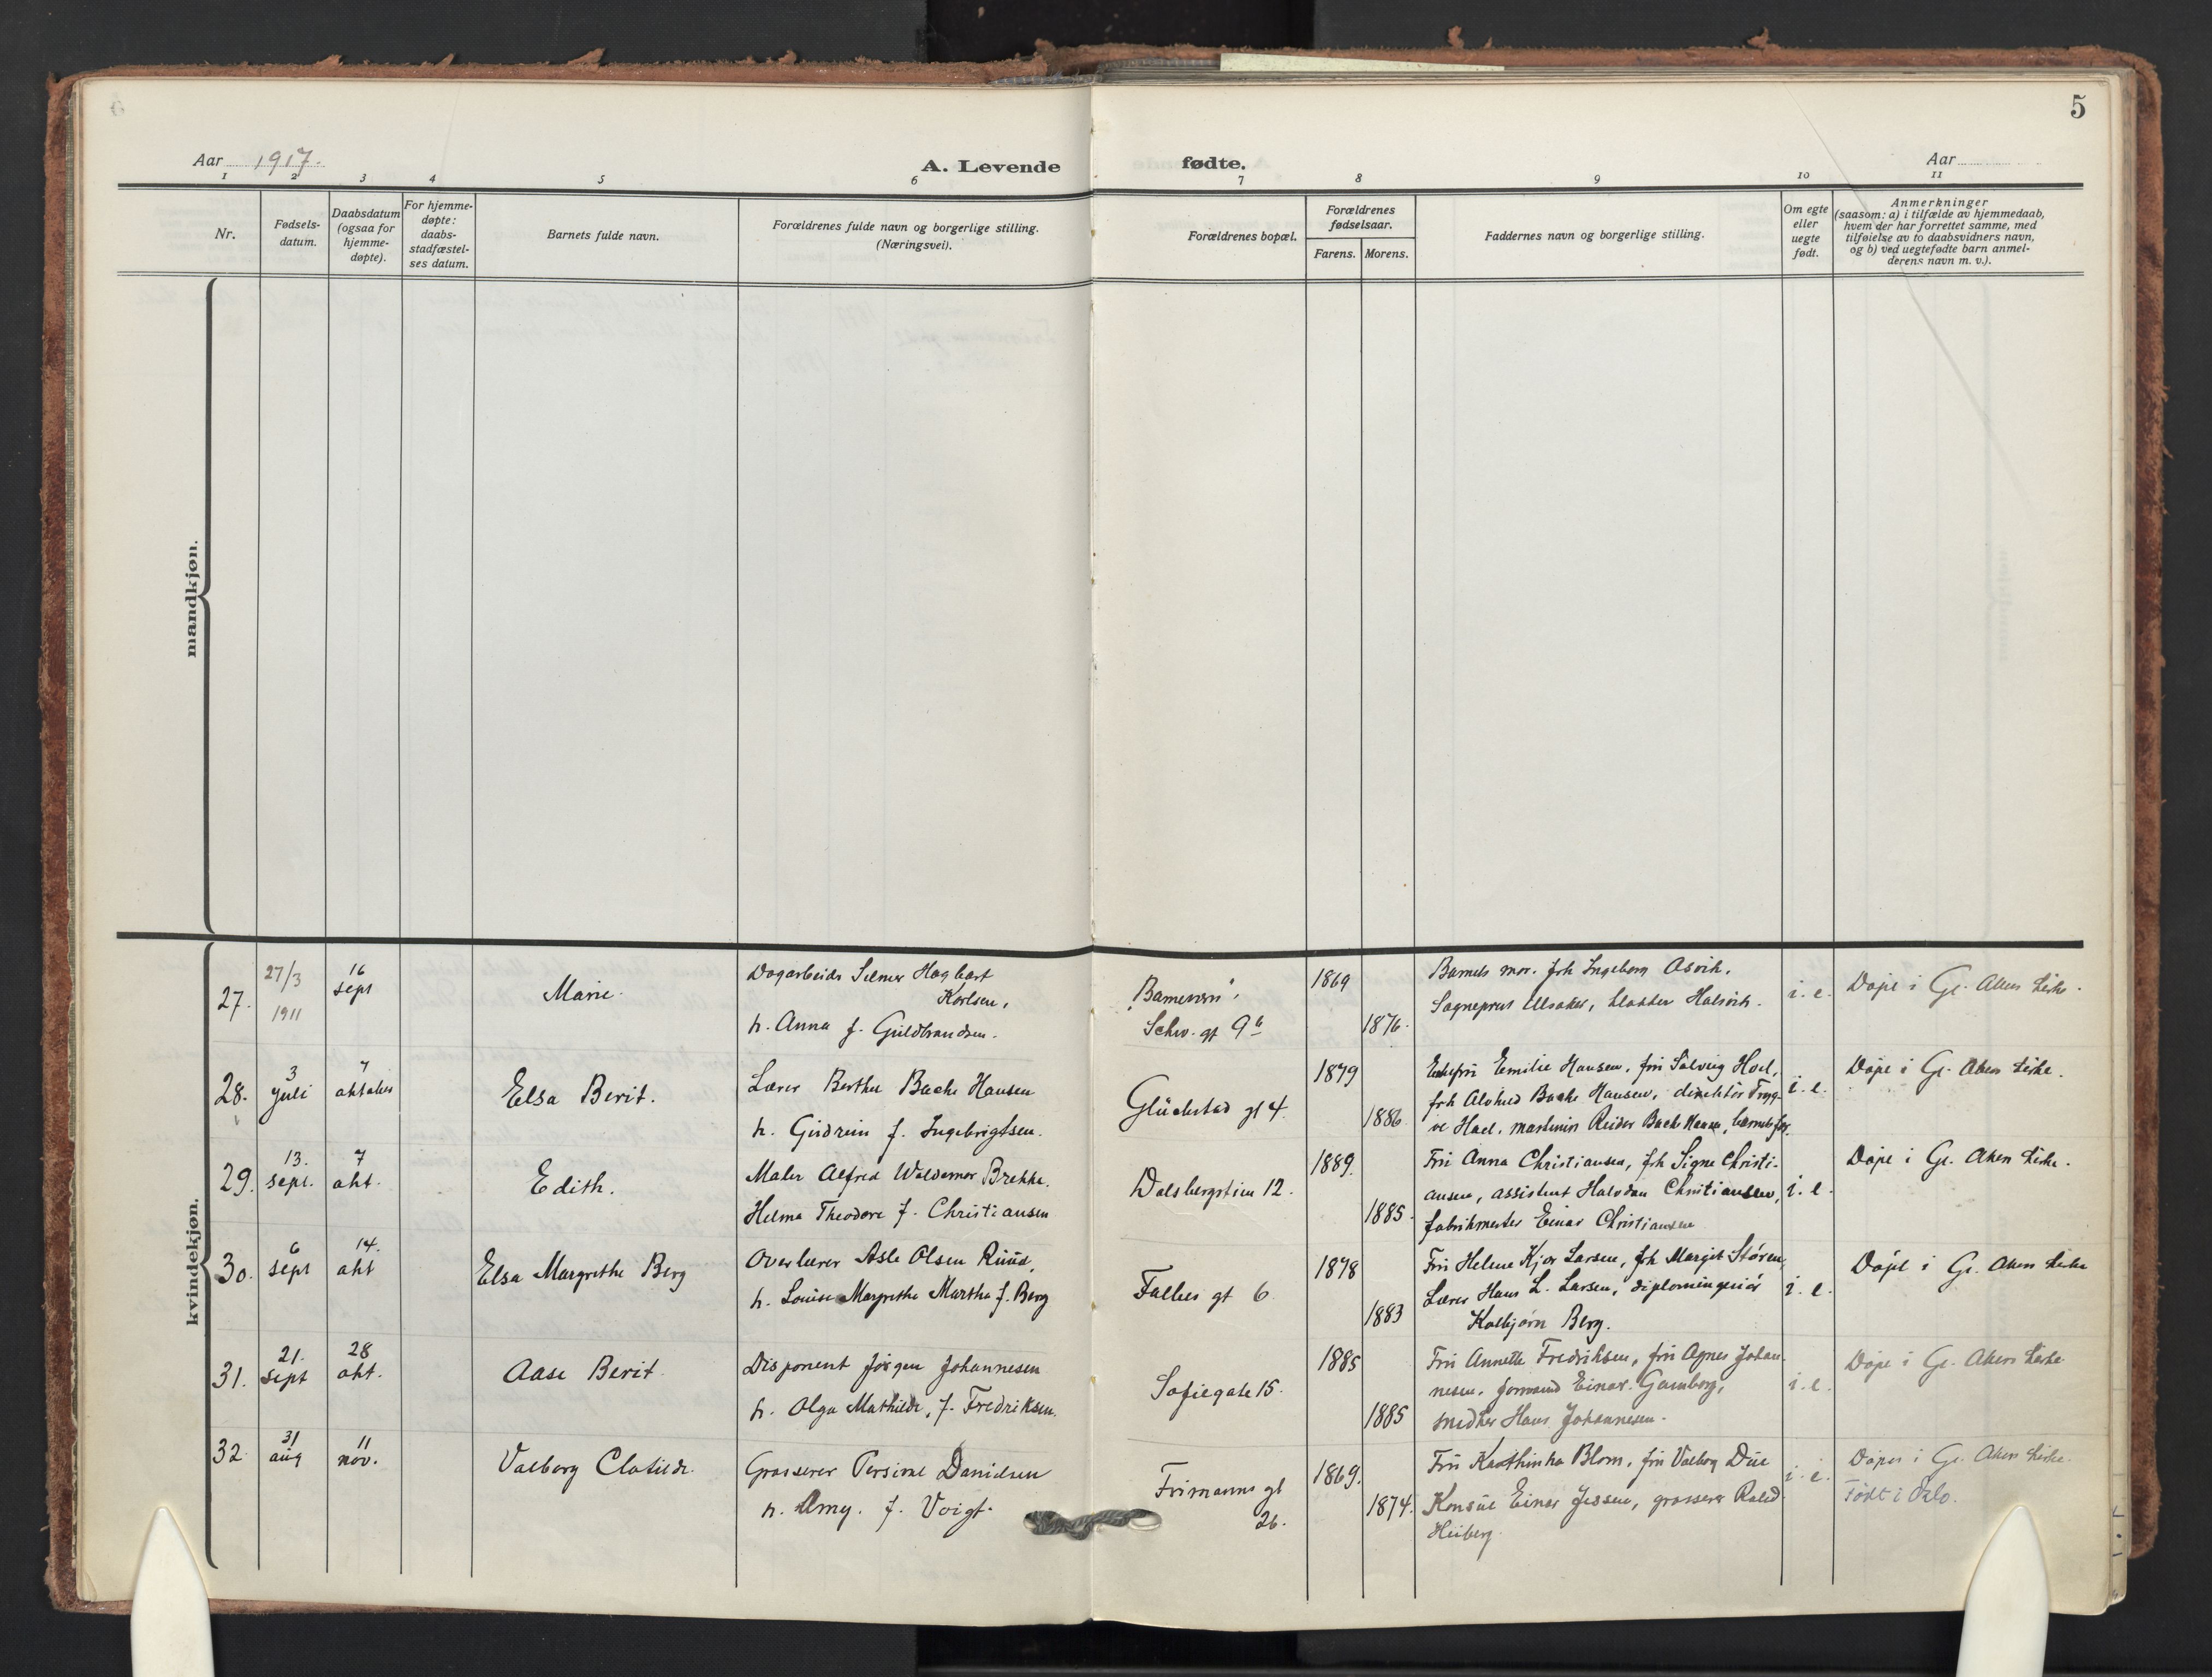 5
Aar 1917.
A. Levende fødte.
Aar
1 2 3 4 5 6 7 8 9 10 11
Nr.
Fødsels-
datum.
Daabsdatum
(ogsaa for
hjemme-
døpte).
For hjemme-
døpte:
daabs-
stadfæstel-
ses datum.
Barnets fulde navn.
Forældrenes fulde navn og borgerlige stilling.
(Næringsvei).
Forældrenes bopæl.
Forældrenes
fødselsaar.
Farens. Morens.
Faddernes navn og borgerlige stilling.
Om egte
eller
uegte
født.
Anmerkninger
(saasom: a) i tilfælde av hjemmedaab,
hvem der har forrettet samme, med
tilføielse av to daabsvidners navn,
og b) ved uegtefødte barn anmel-
derens navn m. v.).
mandkjøn.
kvindekjøn.
27.
27/3
1911
16
sept
Marie.
Dagarbeider Selmer Hagbart
Karlsen,
h. Anna f. Guldbrandsen.
Schw. gt 9b
1869
1876.
Barnets mor. frk Ingeborg Asvik.
i. e.
Døpt i Gl. Aker kirke.
28.
3
juli
7
oktober
Elsa Berit.
Lærer Berther Bache Hansen
h. Gudrun f. Ingebrigtsen.
Glückstad gt 4.
1879
1886
Enkefru Emilie Hansen, fru Solveig Hoel,
frk Alvhild Bache Hansen, direktør Tryg-
ve Hoel, maskinin Reidar Bache Hansen, barnets far.
i. e.
Døpt i Gl. Aker kirke.
29.
13.
sept.
7
okt.
Edith.
Maler Alfred Waldemar Brekke.
Helma Theodora f. Christiansen
Dalsbergstien 12.
1889.
1885.
Fru Anna Christiansen, frk Signe Christi-
ansen, assistent Halvdan Christiansen,
fabrikmester Einar Christiansen
i. e.
Døpt i Gl. Aker kirke.
30.
6
sept
14.
okt
Elsa Margrethe Berg
Overlærer Asle Olsen Ruud,
h. Louise Margrethe Martha f. Berg
Falbes gt 6.
1878
1883
Fru Helene Kjær Larsen, frk Margit Støren,
Lærer Hans L. Larsen, diplomingeniør
Kolbjørn Berg.
i. e.
Døpt i Gl. Aker kirke
31.
21.
sept
28
okt.
Aase Berit.
Disponent Jørgen Johannesen
h. Olga Mathilde, f. Fredriksen.
Sofiegate 15.
1885
1885
Fru Annette Fredriksen, fru Agnes Johan-
nesen. formand Einar Gamborg,
snedker Hans Johannesen.
i. e.
Døpt i Gl. Aker kirke
32.
31
aug
11
nov.
Valborg Clotilde.
Grosserer Persival Danielsen
h. Amy. f. Voigt.
Frimanns gt
26.
1869.
1874.
Fru Kathinka Blom, fru Valborg Due
Konsul Einar Jessen, grosserer
Heiberg.
i. e.
Døpt i Gl. Aker kirke.
Født i Oslo.